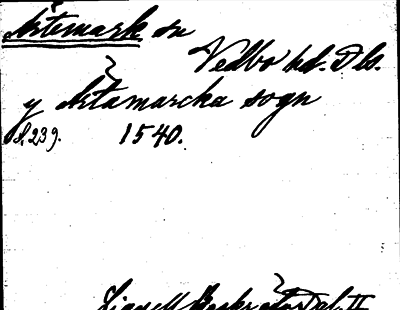 Ärtemark sn
Vedbo hd. Dls.
y Ärtamarcha sogn
S. 239. 1540.
Lignell Beskr. öfver Dal. II